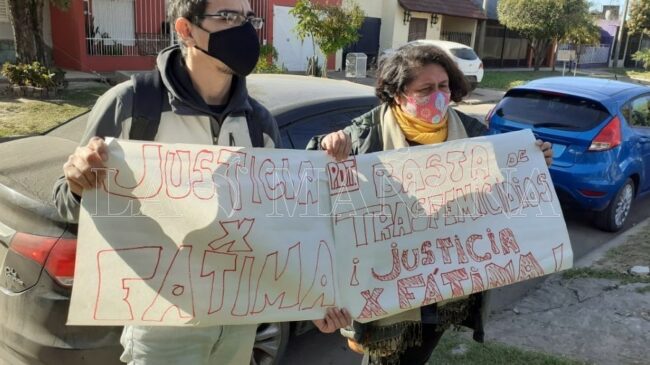 JUSTICIA
X
FATIMA
POR BASTA DE
TRASFEMICIDIOS
¡ JUSTICIA
X FATIMA!
LA MAÑANA